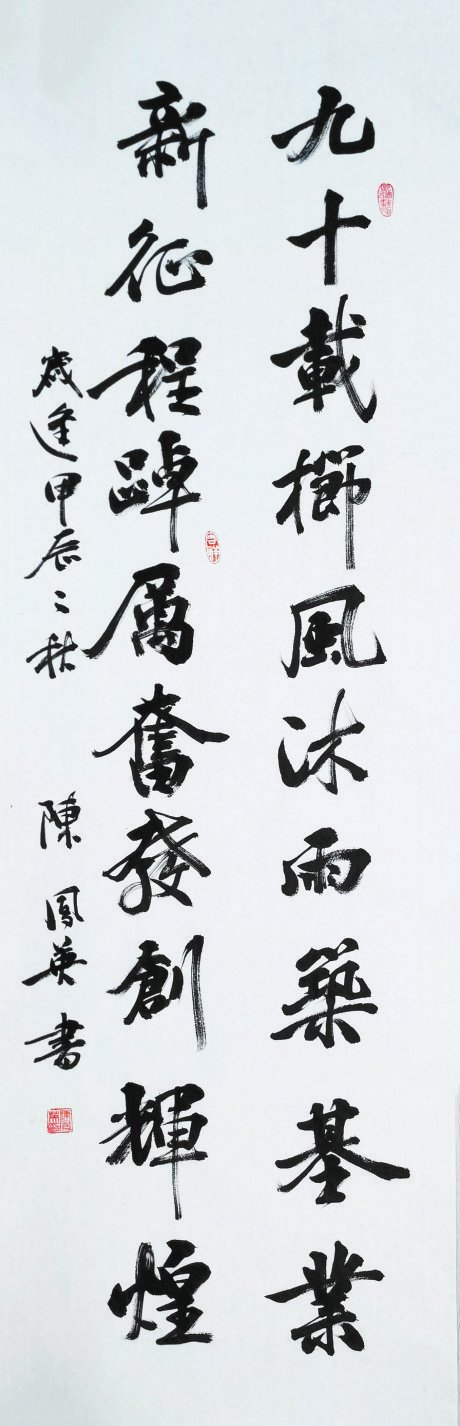 九十載櫛風沐雨築基業
新征程踔厲奮發創輝煌
歲逢甲辰之秋 陳鳳英書